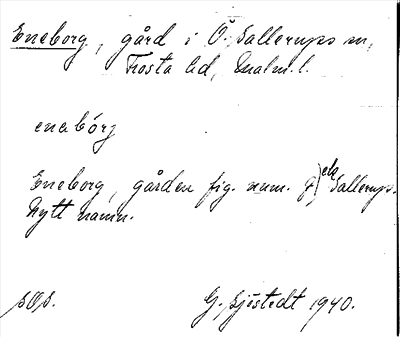 Eneborg, gård i Ö. Sallerups sn,
Frosta hd, Malm. l.
enabórj
Eneborg, gården fig. num. på Sallerups.
Nytt namn.
G. Sjöstedt 1940.